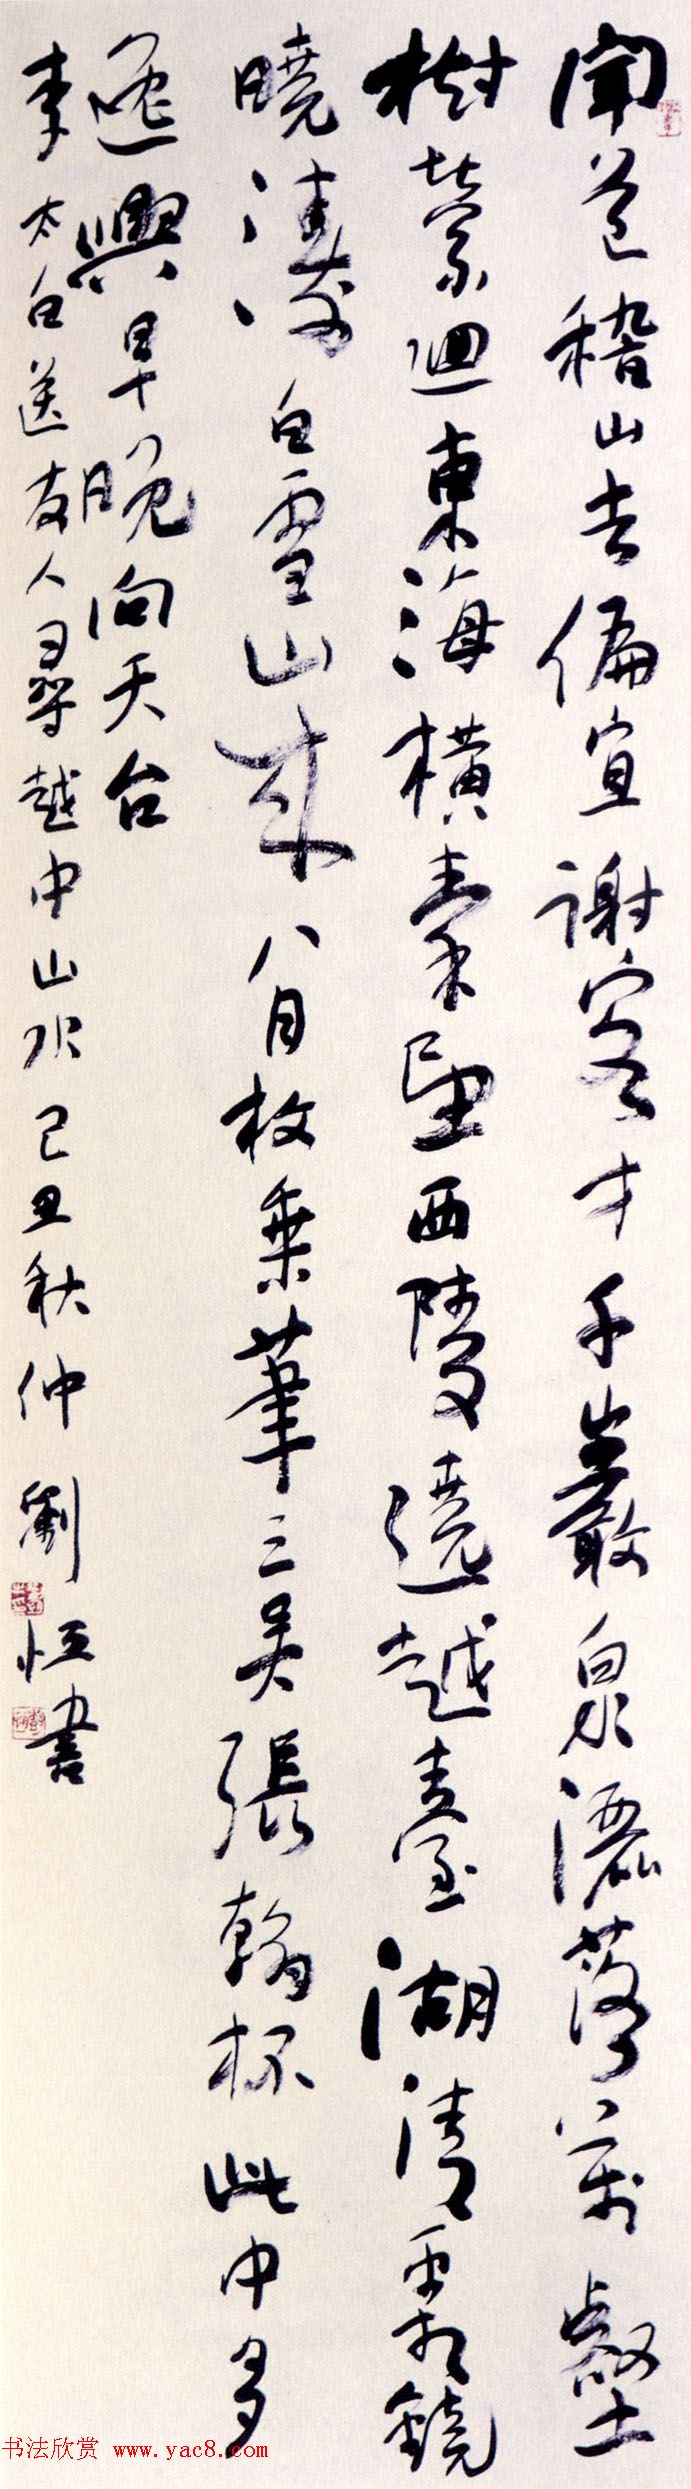 聞道稽山去偏宜謝客才千巖泉灑落萬壑
樹縈迴東海橫秦望西陵遶越臺湖清霜鏡
曉濤白雪山来八月枚乘筆三吳張翰杯此中多
逸興早晚向天台
李太白送友人尋越中山水己丑秋仲劉恒書
书法欣赏 www.yac8.com